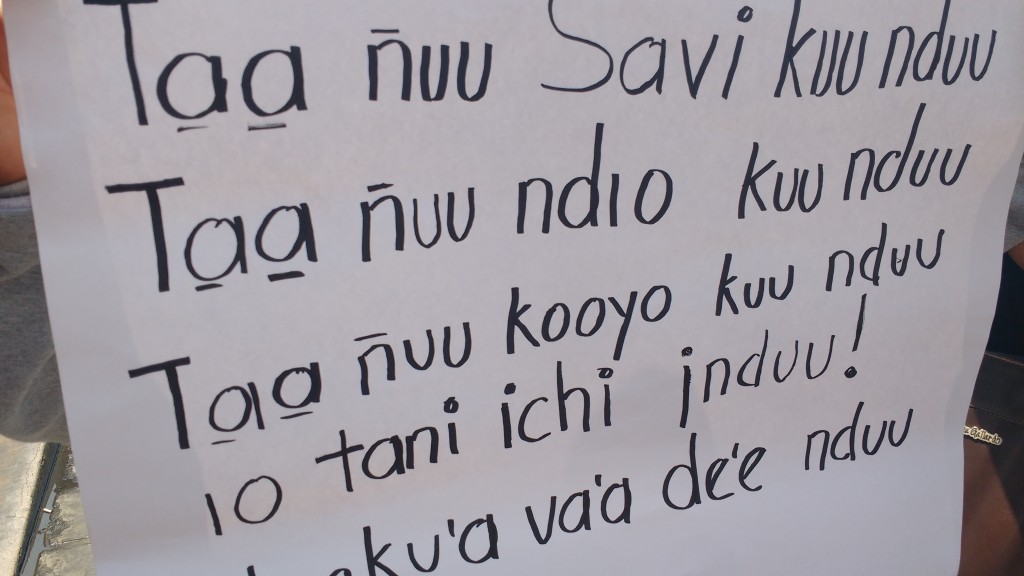 Ta̱a̱ ñuu Savi kuu nduu
Ta̱a̱ ñuu ndıo kuu nduu
Ta̱a̱ ñuu kooyo kuu nduu
ıo tani ichi jnduu!
va'a de'e nduu